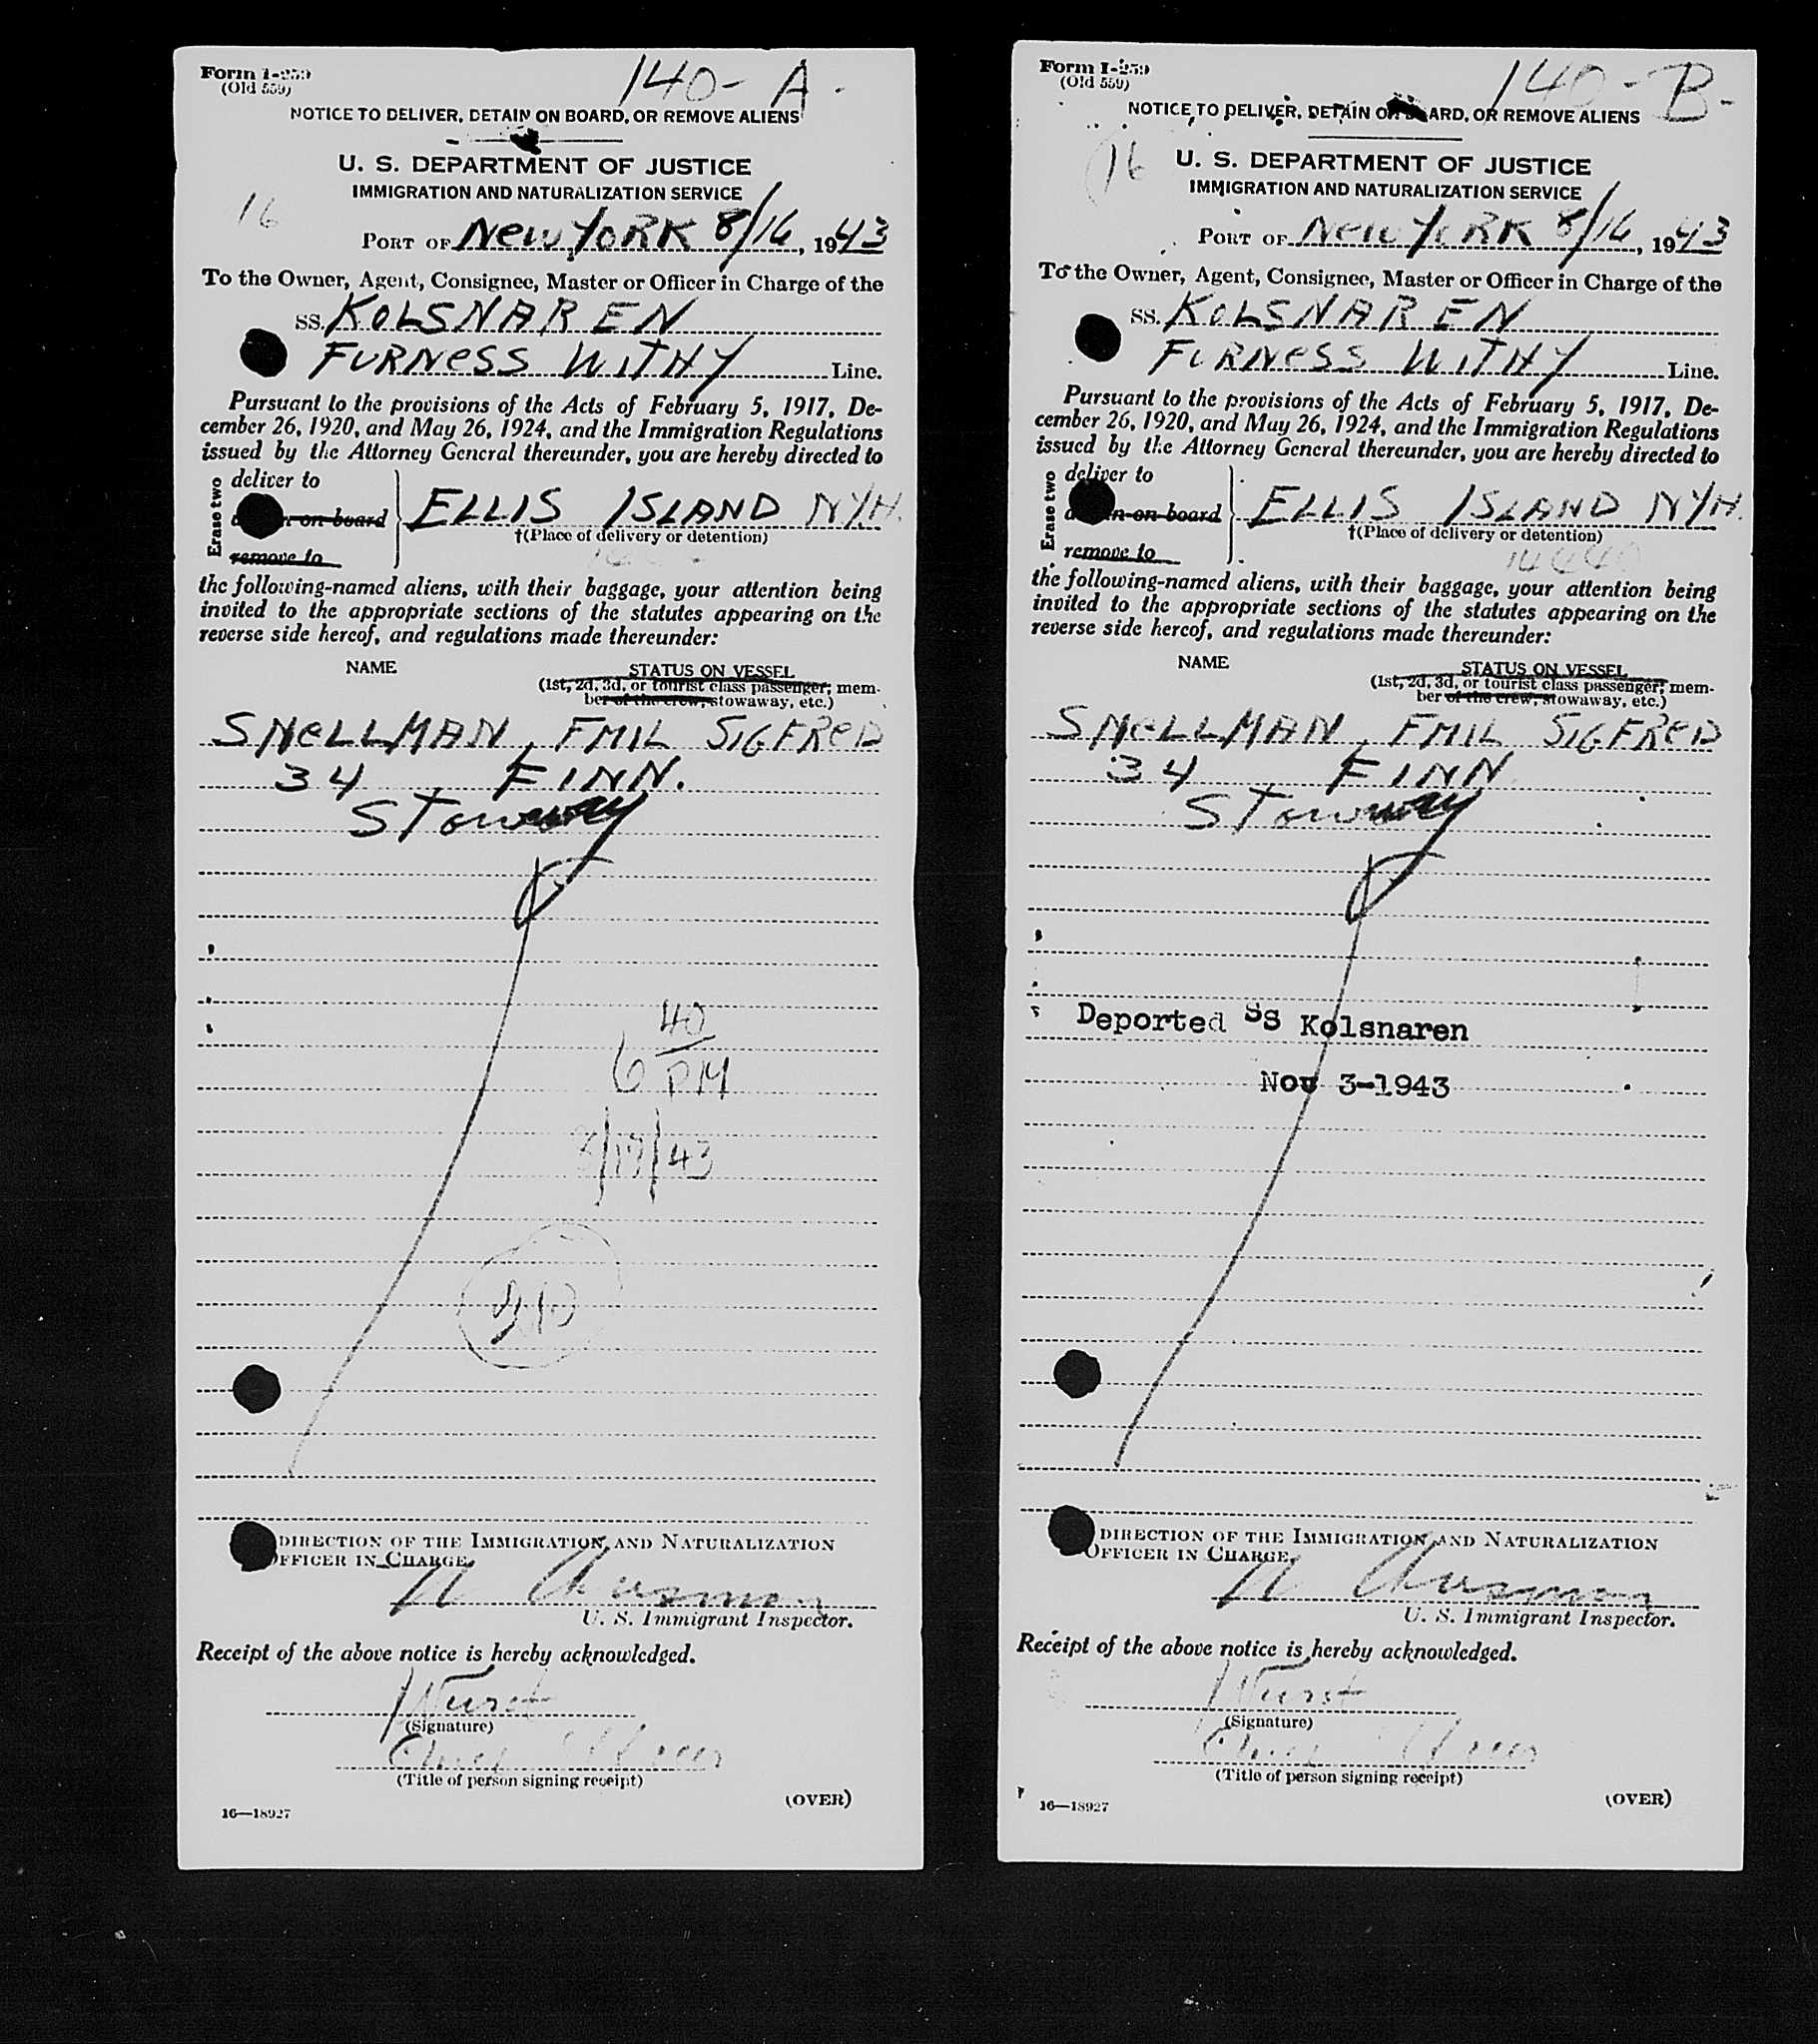 Form I-259
(Old 559)
140-A.
NOTICE TO DELIVER, DETAIN ON BOARD, OR REMOVE ALIENS
U. S. DEPARTMENT OF JUSTICE
IMMIGRATION AND NATURALIZATION SERVICE
16
PORT OF NEW YORK 8/16, 1943
To the Owner, Agent, Consignee, Master or Officer in Charge of the
SS. KOLSNAREN
FURNESS WITHY Line.
Pursuant to the provisions of the Acts of February 5, 1917, De-
cember 26, 1920, and May 26, 1924, and the Immigration Regulations
issued by the Attorney General thereunder, you are hereby directed to
Erase two
deliver to
on board
remove to
ELLIS ISLAND NYH.
†(Place of delivery or detention)
the following-named aliens, with their baggage, your attention being
invited to the appropriate sections of the statutes appearing on the
reverse side hereof, and regulations made thereunder:
NAME
STATUS ON VESSEL
(1st, 2d, 3d, or tourist class passenger, mem-
ber of the crew, stowaway, etc.)
SNELLMAN, EMIL SIGFRED
34 FINN.
Stowaway
6 40 PM
8/17/43
DIRECTION OF THE IMMIGRATION AND NATURALIZATION
OFFICER IN CHARGE.
U. S. Immigrant Inspector.
Receipt of the above notice is hereby acknowledged.
(Signature)
(Title of person signing receipt)
(OVER)
16—18927
Form I-259
(Old 559)
140-B-
NOTICE TO DELIVER, DETAIN ON BOARD, OR REMOVE ALIENS
16
U. S. DEPARTMENT OF JUSTICE
IMMIGRATION AND NATURALIZATION SERVICE
PORT OF NEW YORK 8/16, 1943
To the Owner, Agent, Consignee, Master or Officer in Charge of the
SS. KOLSNAREN
FURNESS WITHY Line.
Pursuant to the provisions of the Acts of February 5, 1917, De-
cember 26, 1920, and May 26, 1924, and the Immigration Regulations
issued by the Attorney General thereunder, you are hereby directed to
Erase two
deliver to
on board
remove to
ELLIS ISLAND NYH.
†(Place of delivery or detention)
the following-named aliens, with their baggage, your attention being
invited to the appropriate sections of the statutes appearing on the
reverse side hereof, and regulations made thereunder:
NAME
STATUS ON VESSEL
(1st, 2d, 3d, or tourist class passenger, mem-
ber of the crew, stowaway, etc.)
SNELLMAN, EMIL SIGFRED
34 FINN
Stowaway
Deported SS Kolsnaren
Nov 3-1943
DIRECTION OF THE IMMIGRATION AND NATURALIZATION
OFFICER IN CHARGE.
U. S. Immigrant Inspector.
Receipt of the above notice is hereby acknowledged.
(Signature)
(Title of person signing receipt)
(OVER)
16—18927